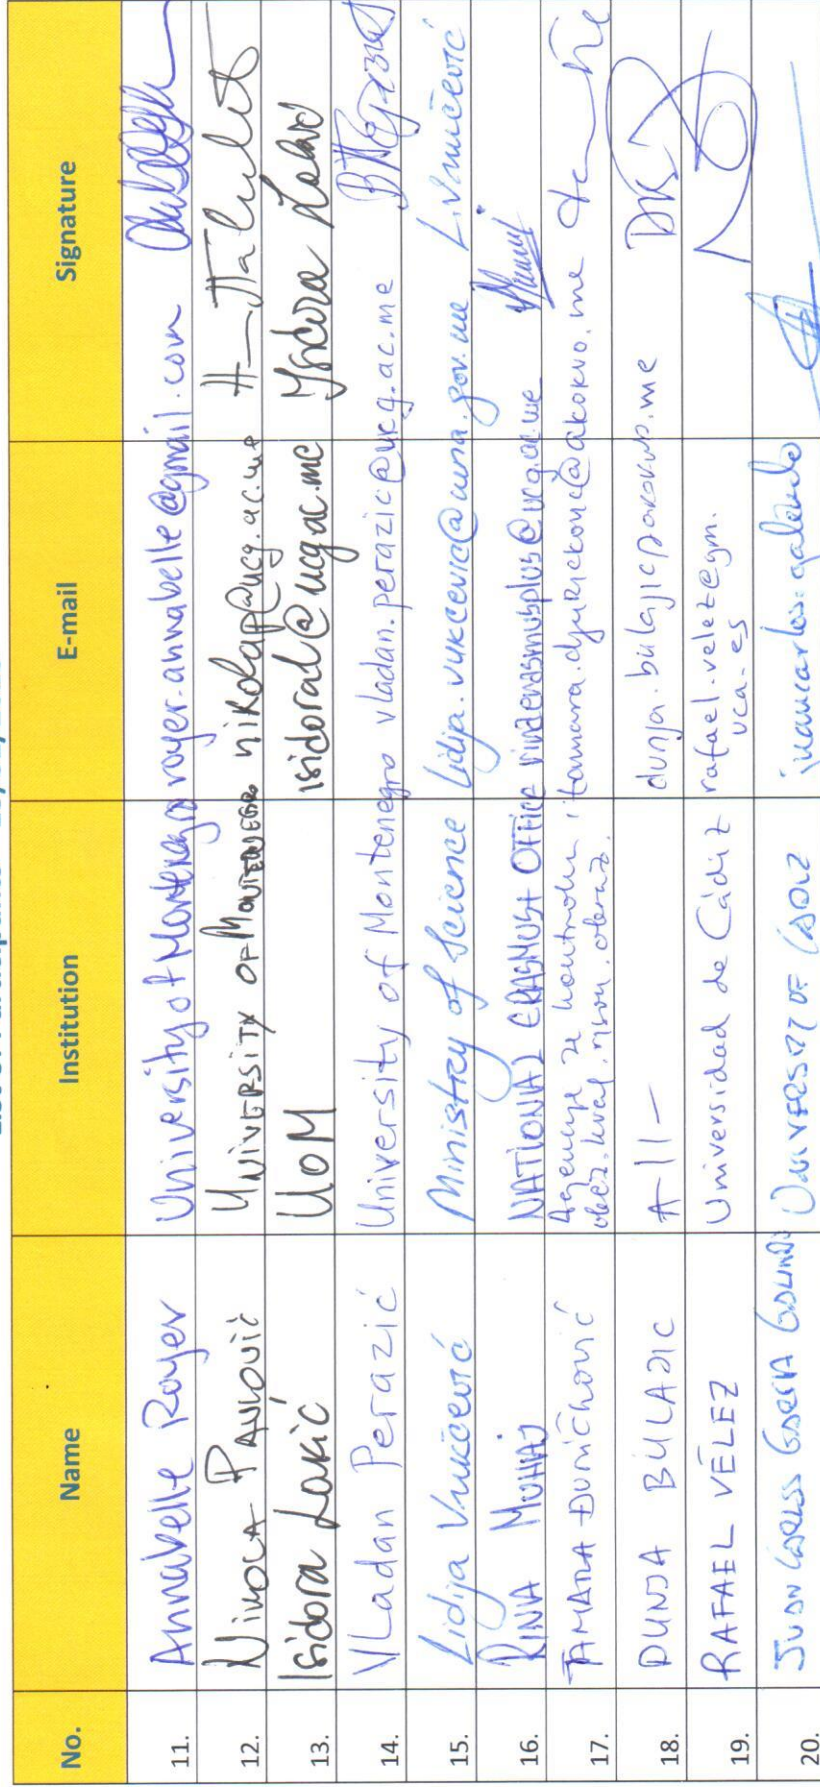 No. Name Institution E-mail Signature
11. Annabelle Royer University of Montenegro royer.annabelle@gmail.com
12. Nikola Pavlović University of Montenegro nikolap@ucg.ac.me
13. Isidora Lakić UoM isidoral@ucg.ac.me
14. Vladan Perazić University of Montenegro vladan.perazic@ucg.ac.me
15. Lidija Vukčević Ministry of Science lidija.vukcevic@mna.gov.me L.Vukčević
16. RINA MUHAJ NATIONAL ERASMUS+ OFFICE
17. TAMARA ĐURIČKOVIĆ Agencija za kontrolu i
obez. kval. visok. obraz. tamara.djurickovic@akokvo.me
18. DUNJA BULAJIC -||-
19. RAFAEL VÉLEZ Universidad de Cádiz rafael.velez@gm.
uca.es
20. JUAN CARLOS GARCIA GALINDO UNIVERSITY OF CADIZ juancarlos.galindo